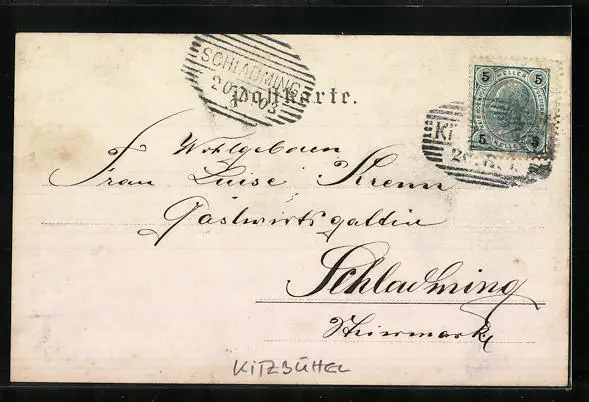 SCHLADMING
20
03
Postkarte.
5 HELLER 5
5
KI
Wohlgeboren
Frau Luise Krenn
Gastwirtsgattin
Schladming
Steiermark
KITZBÜHEL